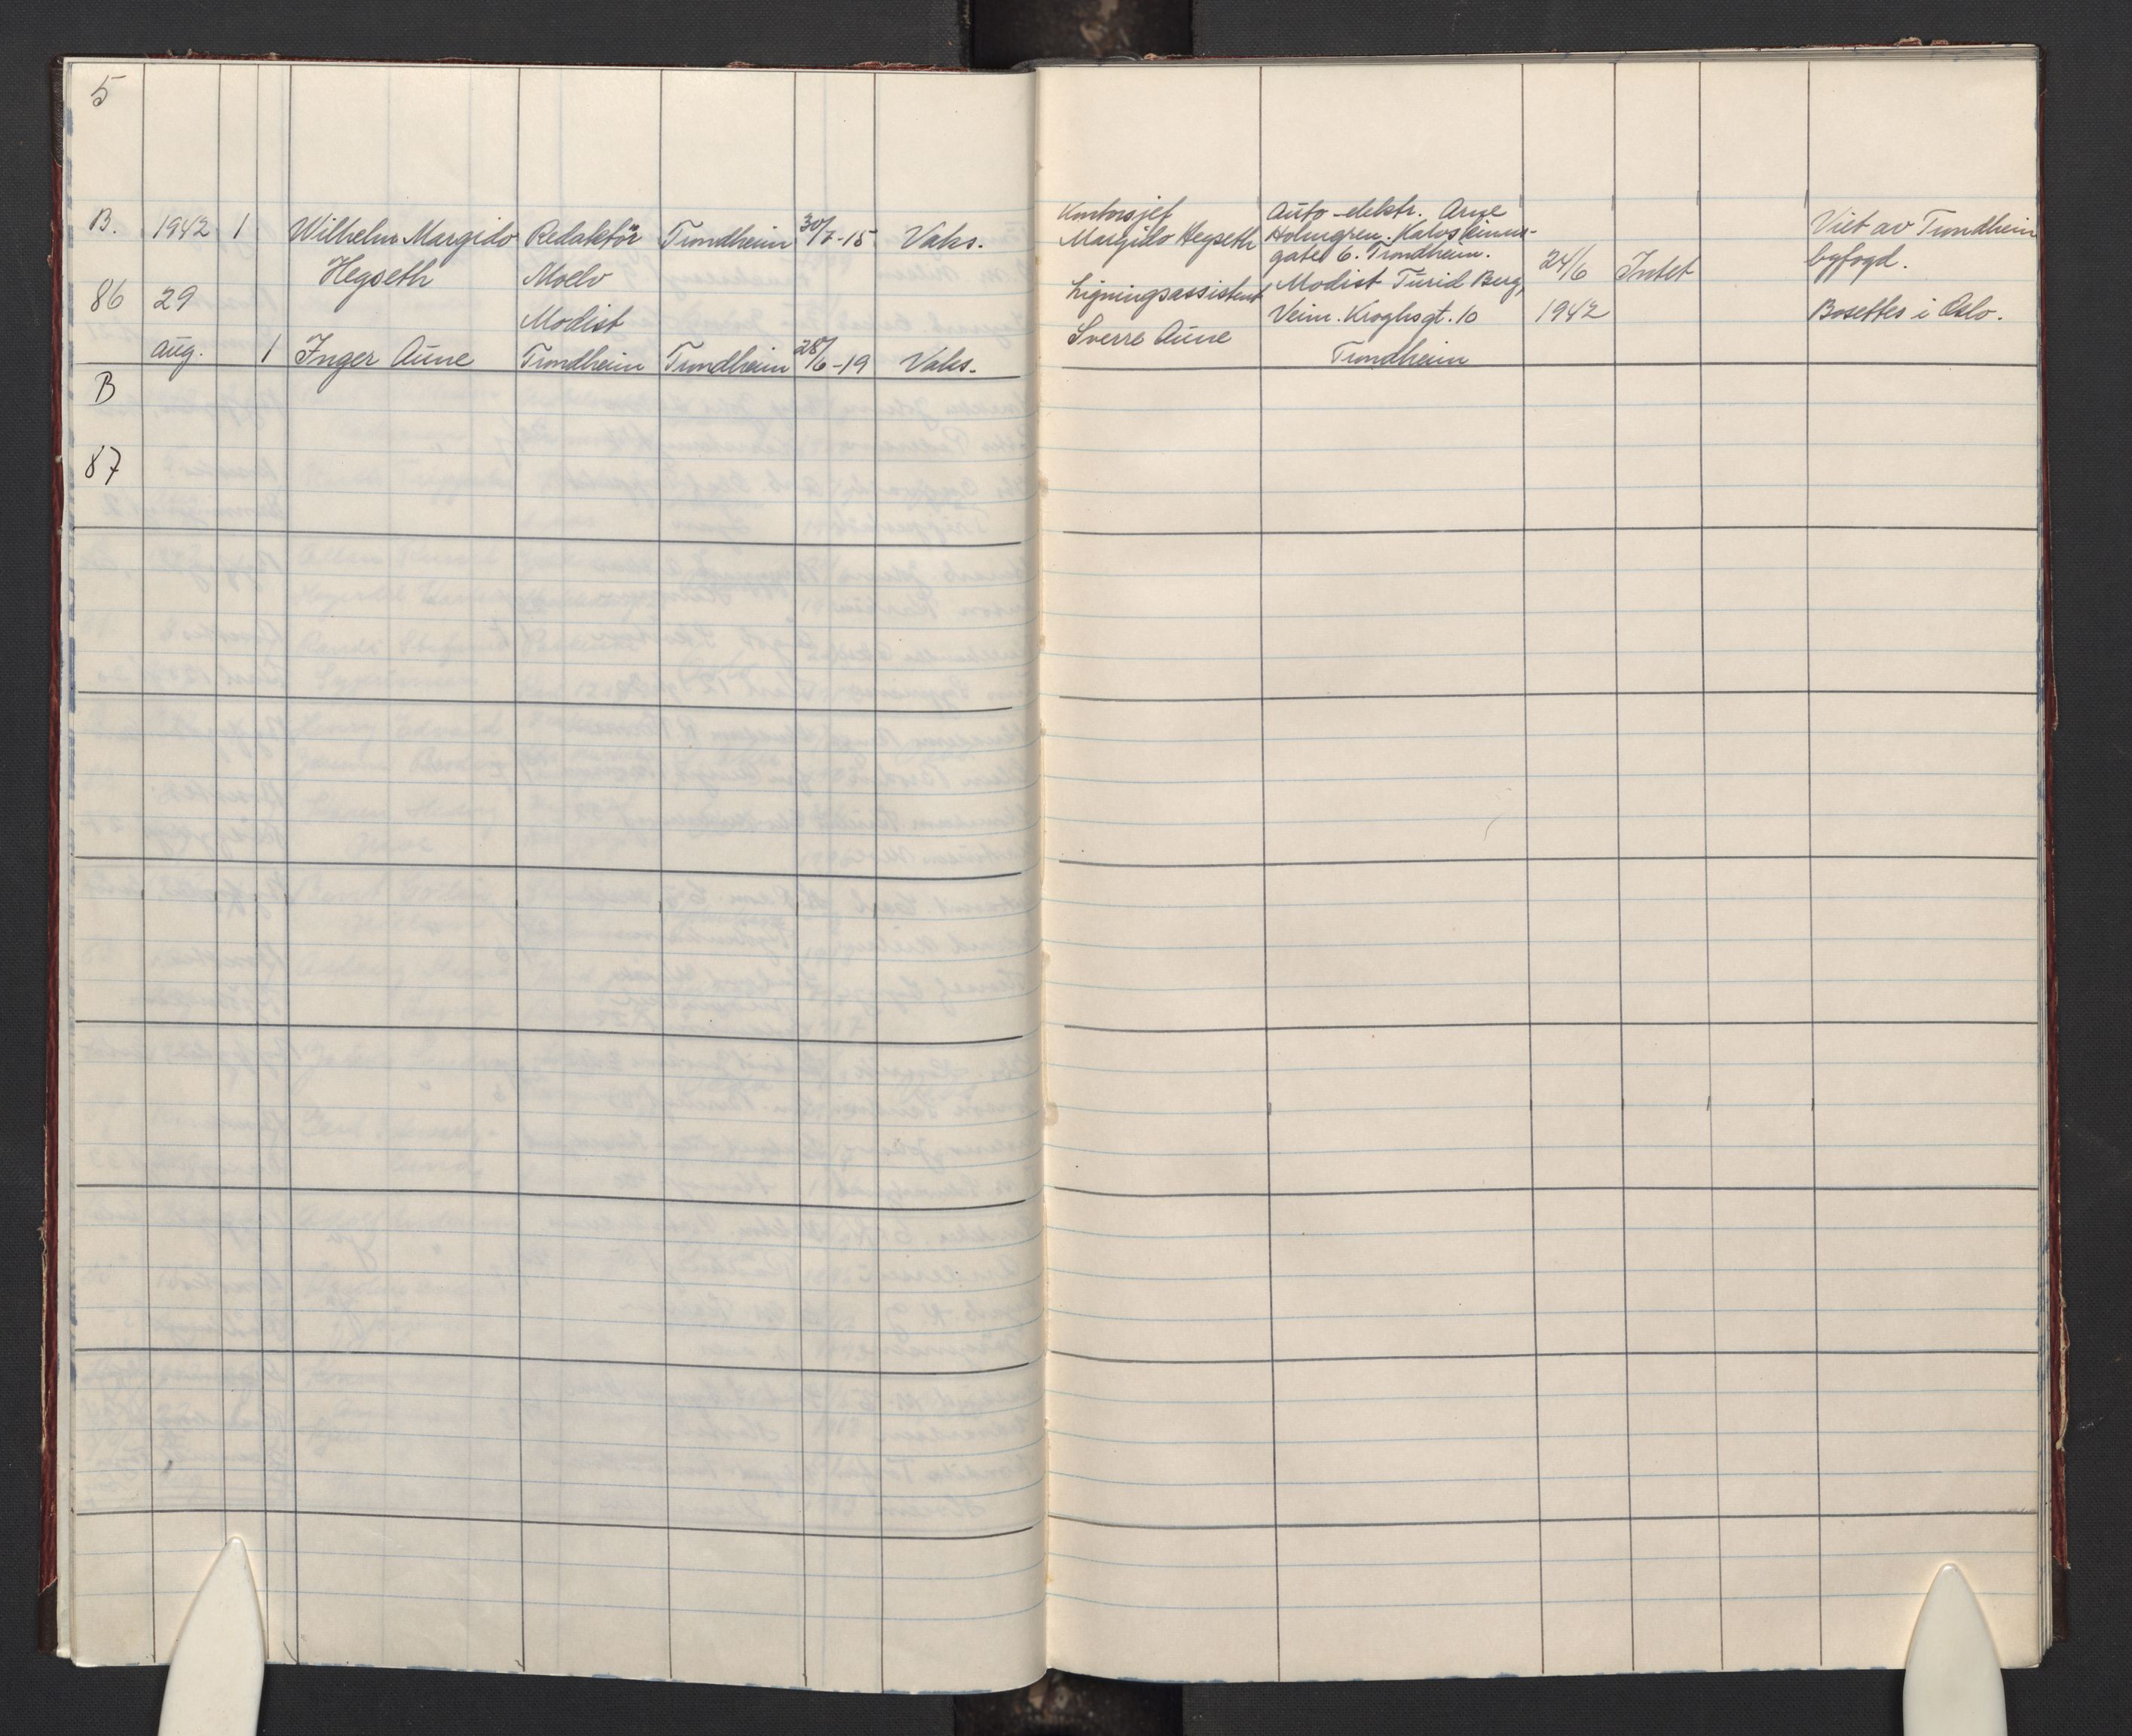 5
B. 1942 1 Wilhelm Margido Redaktör Trondheim 30/7-15 Vaks.
Hegseth Moelv
86 29 Modist
aug. 1 Inger Aune Trondheim Trondheim 28/6-19 Vaks.
B
87
Kontorsjef
Margido Hegseth
Ligningsassistent
Sverre Aune
Auto-elektr. Arne
Holmgren. Kalvskinns-
gate 6. Trondheim.
Modist Turid Berg,
Veim. Kroghsgt. 10
Trondheim
24/6
1942
Intet
Viet av Trondheim
byfogd.
Bosettes i Oslo.